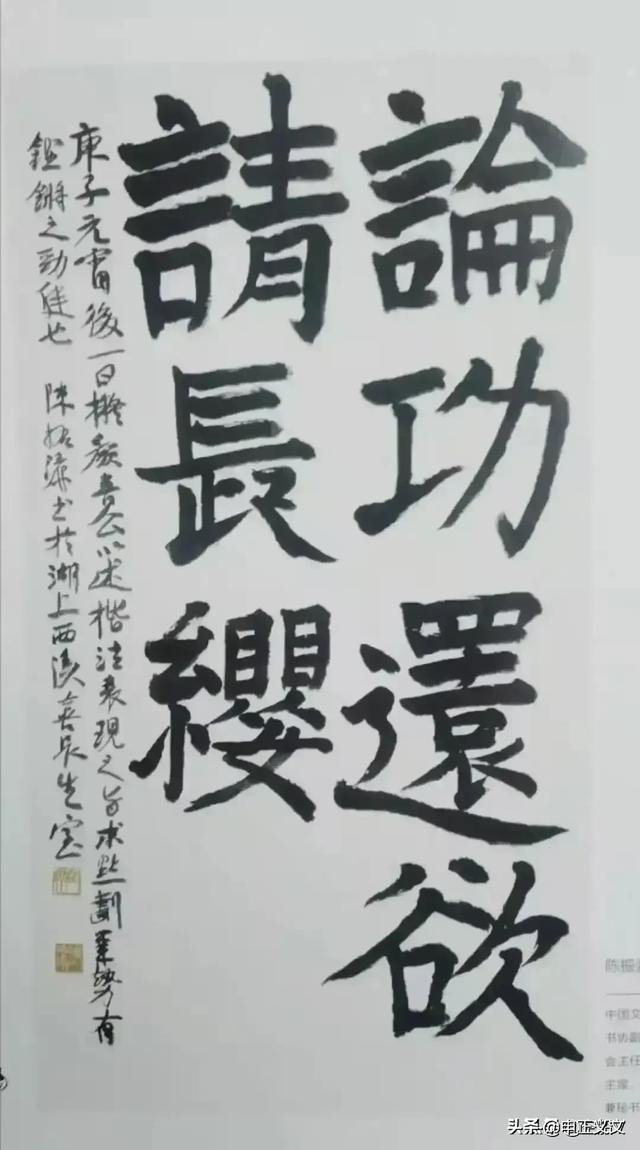 論功還欲
請長纓
庚子元宵後一日擬顏魯公以述楷法表現之旨求點劃筆勢有
鏗鏘之勁健也 陳振濂書於湖上西溪喜長生室
陈振
中国文
书协副
会主任
主席、
兼秘书
头条@电正义文